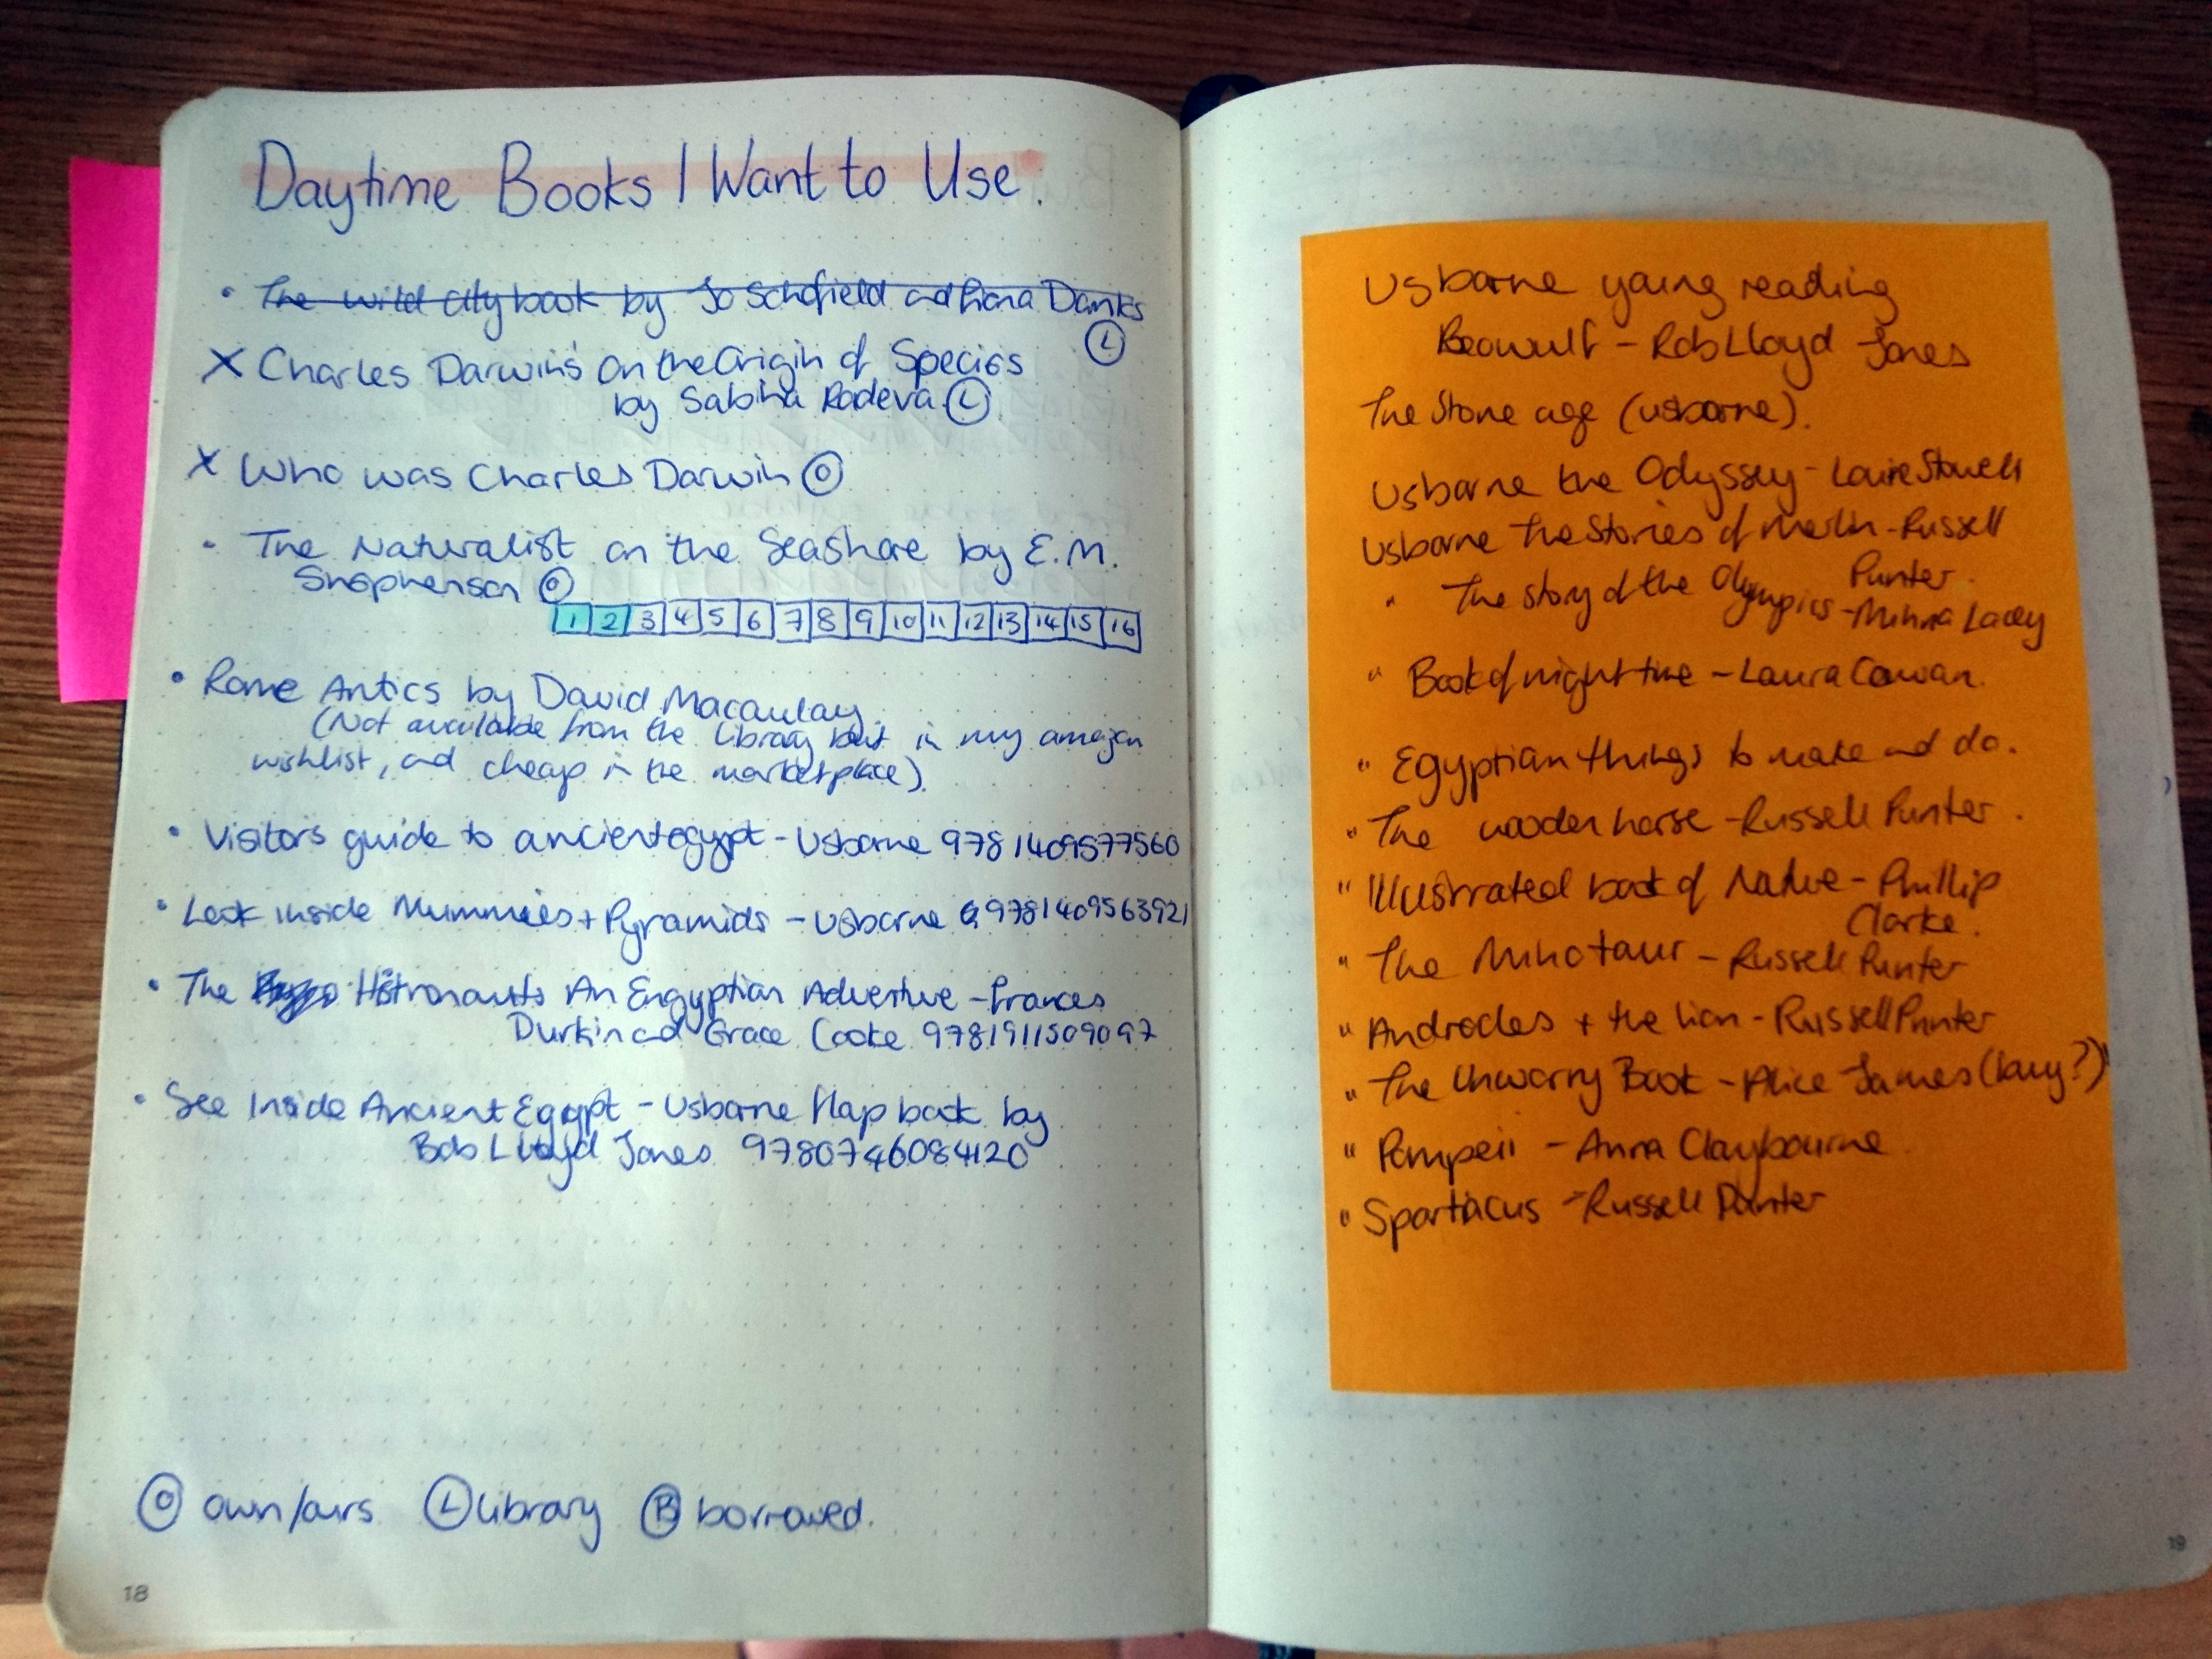 Daytime Books I Want to Use.
• The wild city book by Jo Schofield and Fiona Danks
Ⓛ
X Charles Darwin's On the Origin of Species
by Sabina Radeva Ⓛ
X Who was Charles Darwin Ⓞ
• The Naturalist on the Seashore by E.M.
Shephenson Ⓞ
1 2 3 4 5 6 7 8 9 10 11 12 13 14 15 16
• Rome Antics by David Macaulay.
(Not available from the library but in my amazon
wishlist, and cheap in the marketplace).
• Visitors guide to ancient egypt - Usborne 9781409577560
• Look inside Mummies + Pyramids - Usborne 9781409563921
• The Histronauts An Engyptian Adventure - Frances
Durkin and Grace Cooke 9781911509097
• See Inside Ancient Egypt - Usborne flap book by
Rob Lloyd Jones 9780746084120
Ⓞ own/ours Ⓛ library Ⓑ borrowed.
18
Usborne young reading
Beowulf - Rob Lloyd Jones
The Stone age (usborne).
Usborne the Odyssey - Louie Stowell
Usborne The Stories of Merlin - Russell
Punter.
" The story of the Olympics - Minna Lacey
" Book of night time - Laura Cowan.
" Egyptian things to make and do.
" The wooden horse - Russell Punter.
" Illustrated book of Nature - Phillip
Clarke.
" The Minotaur - Russell Punter
" Androcles + the lion - Russell Punter
" The Unworry Book - Alice James (buy?)
" Pompeii - Anna Claybourne
" Spartacus - Russell Punter
19